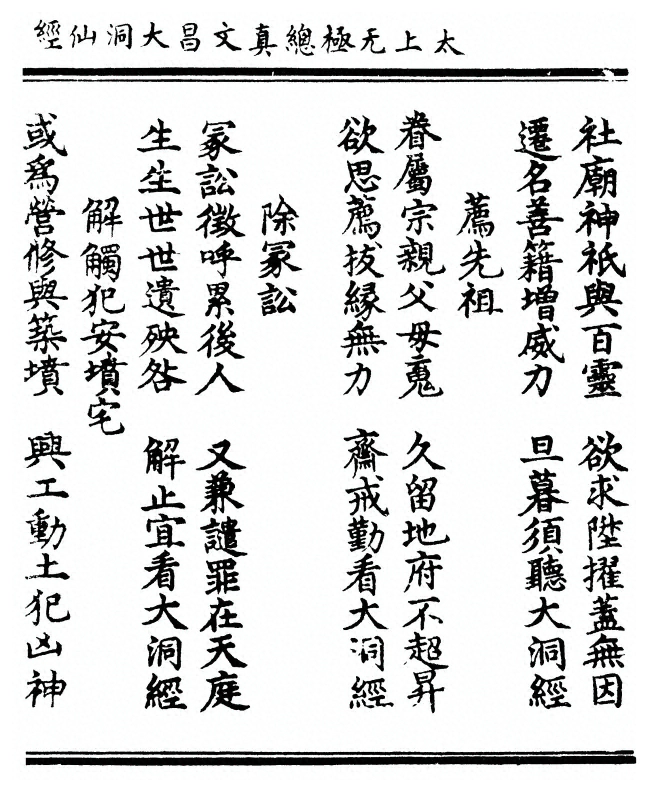 太上无極總真文昌大洞仙經
社廟神祇與百靈　欲求陞擢蓋無因
遷名善籍增威力　旦暮須聽大洞經
薦先祖
眷屬宗親父母䰟　久留地府不超昇
欲思薦拔緣無力　齋戒勤看大洞經
除冢訟
冢訟徵呼累後人　又兼譴罪在天庭
生生世世遺殃咎　解止宜看大洞經
解觸犯安墳宅
或為營修與築墳　興工動土犯凶神